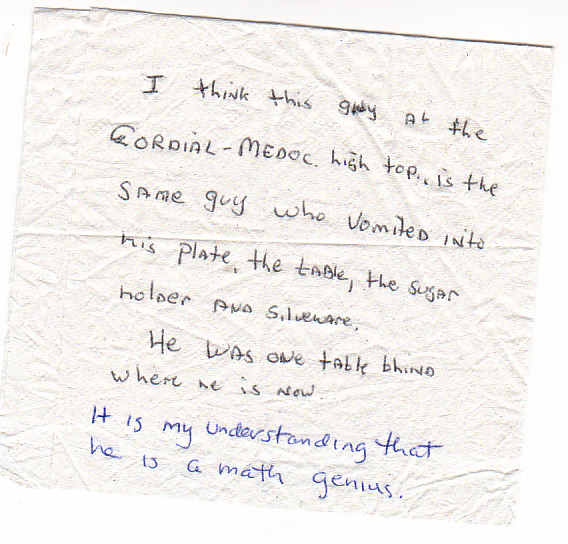 I think this guy at the
CORDIAL-MEDOC. high top., is the
SAME guy who Vomited into
his plate, the table, the sugar
holder AND Silveware.
He WAS one table bhind
where he is now.
It is my understanding that
he is a math genius.